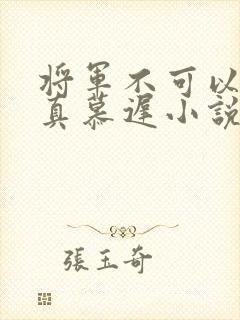 将軍不可以
真慕遲小說
張玉奇